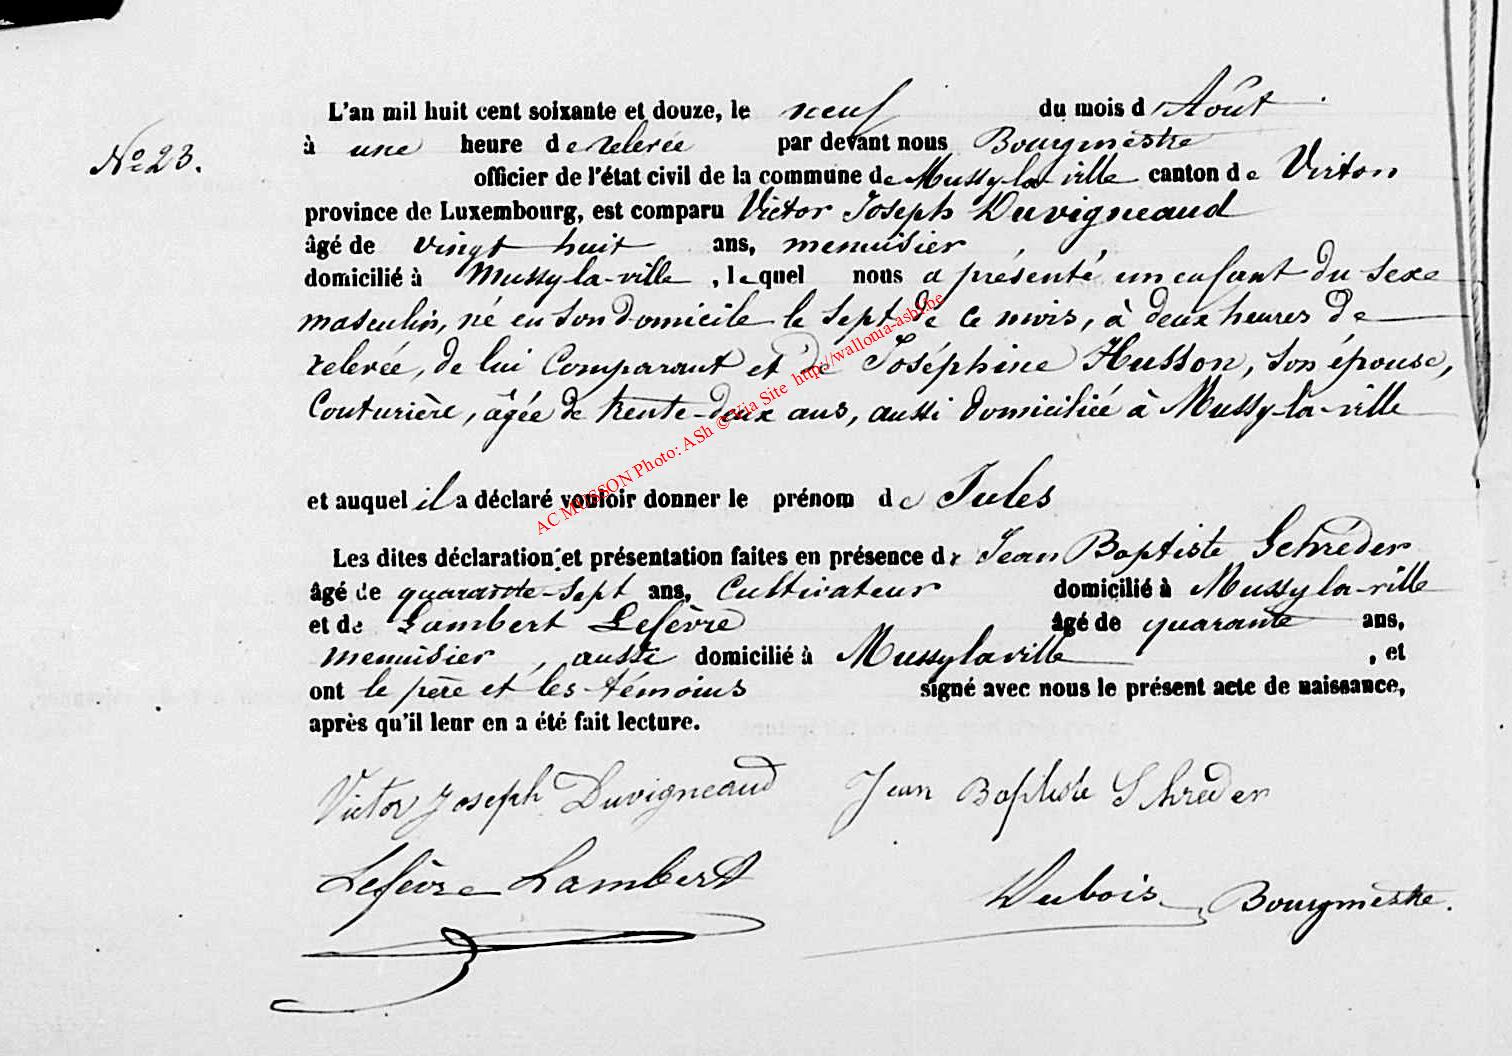 L'an mil huit cent soixante et douze, le neuf du mois d'Août
No 23.
à une heure de relevée par devant nous Bourgmestre
officier de l'état civil de la commune de Mussy-la-ville canton de Virton
province de Luxembourg, est comparu Victor Joseph Duvigneaud
âgé de vingt huit ans, menuisier
domicilié à Mussy la-ville, lequel nous a présenté un enfant du sexe
masculin, né en son domicile le sept de ce mois, à deux heures de
relevée, de lui Comparant et de Joséphine Husson, son épouse,
Couturière, âgée de trente-deux ans, aussi domiciliée à Mussy-la-ville
et auquel il a déclaré vouloir donner le prénom de Jules
AC MUSSON Photo: ASh @ Via Site http://wallonia-asbl.be
Les dites déclaration et présentation faites en présence de Jean Baptiste Schréder
âgé de quarante-sept ans, Cultivateur domicilié à Mussy la-ville
et de Lambert Lefèvre âgé de quarante ans,
menuisier, aussi domicilié à Mussy la ville, et
ont le père et les témoins signé avec nous le présent acte de naissance,
après qu'il leur en a été fait lecture.
Victor Joseph Duvigneaud Jean Baptiste Schreder
Lefèvre Lambert
Dubois Bourgmestre.